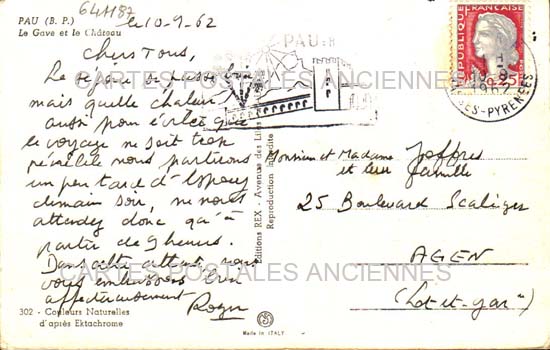 64487
PAU (B. P.)
Le Gave et le Château
le 10-9-62
Chers Tous,
Le séjour se passe bien
mais quelle chaleur
aussi pour éviter que
le voyage ne soit trop
pénible nous partirons
un peu tard d'Espouy
demain soir, ne nous
attendez donc qu'à
partir de 9 heures.
Dans cette attente nous
vous embrassons bien
affectueusement
Roger
302 - Couleurs Naturelles
d'après Ektachrome
Editions REX - Avenue des Lilas
Reproduction interdite
Made in ITALY
PAU
REPUBLIQUE FRANÇAISE
0,25
BSES-PYRENEES
Monsieur et Madame Joffres
et leur famille
25 Boulevard Scaliger
AGEN
(Lot-et-Gar ne)
CARTES POSTALES ANCIENNES
CARTES POSTALES ANCIENNES